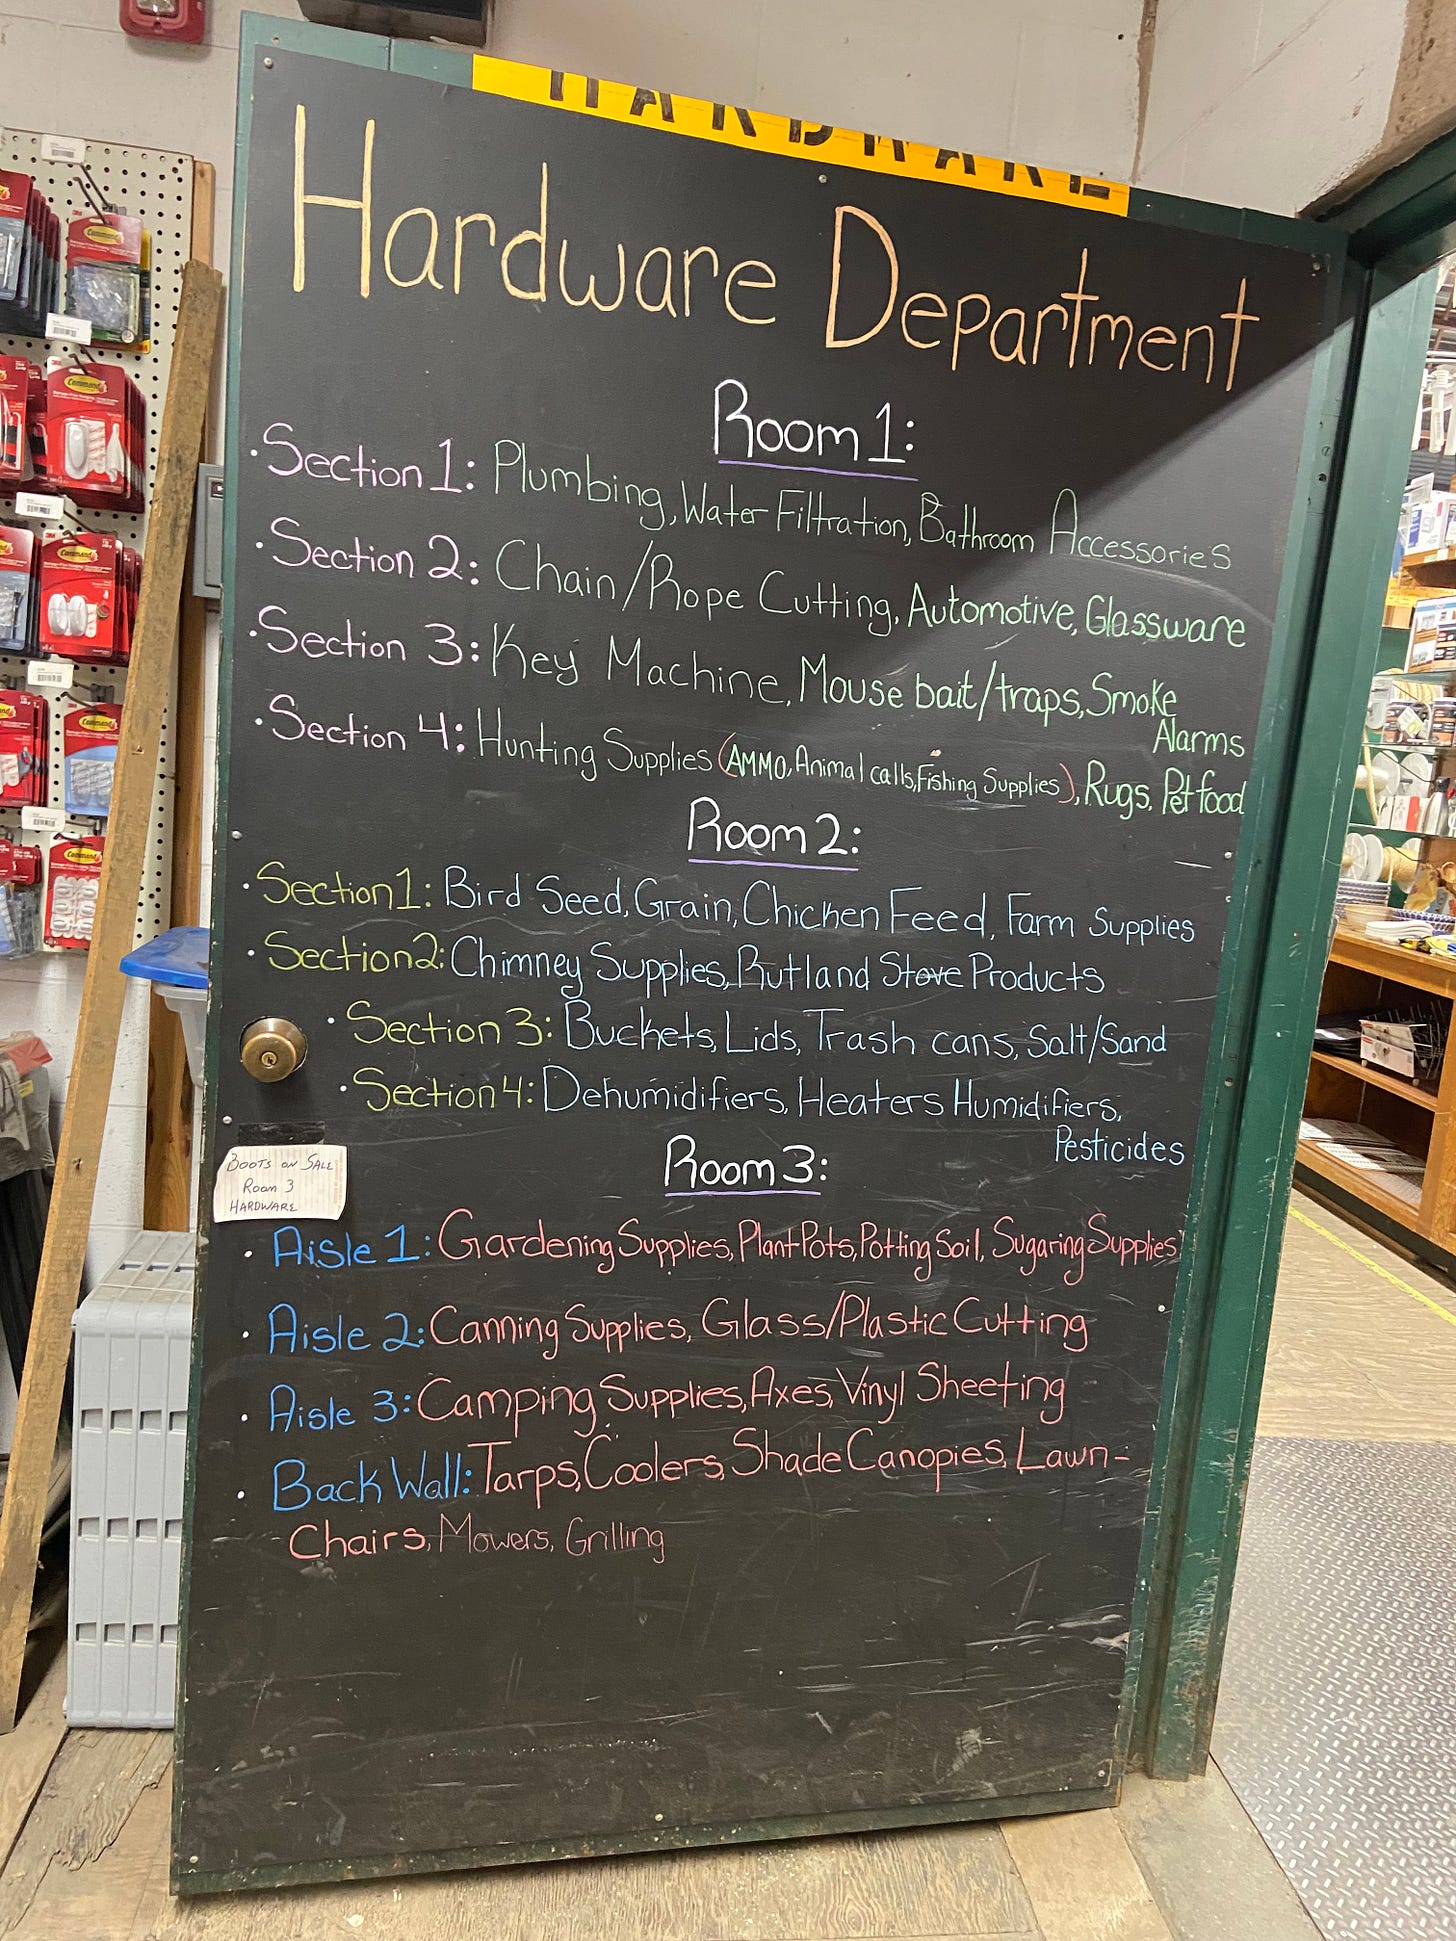 HARDWARE
Hardware Department
Room 1:
· Section 1: Plumbing, Water Filtration, Bathroom Accessories
· Section 2: Chain/Rope Cutting, Automotive, Glassware
· Section 3: Key Machine, Mouse bait/traps, Smoke
Alarms
· Section 4: Hunting Supplies (AMMO, Animal calls, Fishing Supplies), Rugs, Pet food
Room 2:
· Section 1: Bird Seed, Grain, Chicken Feed, Farm Supplies
· Section 2: Chimney Supplies, Rutland Stove Products
· Section 3: Buckets, Lids, Trash cans, Salt/Sand
· Section 4: Dehumidifiers, Heaters Humidifiers,
Pesticides
Room 3:
BOOTS ON SALE
Room 3
HARDWARE
· Aisle 1: Gardening Supplies, Plant Pots, Potting Soil, Sugaring Supplies
· Aisle 2: Canning Supplies, Glass/Plastic Cutting
· Aisle 3: Camping Supplies, Axes, Vinyl Sheeting
· Back Wall: Tarps, Coolers, Shade Canopies, Lawn-
-Chairs, Mowers, Grilling
Command
Command
Command
Command
Command